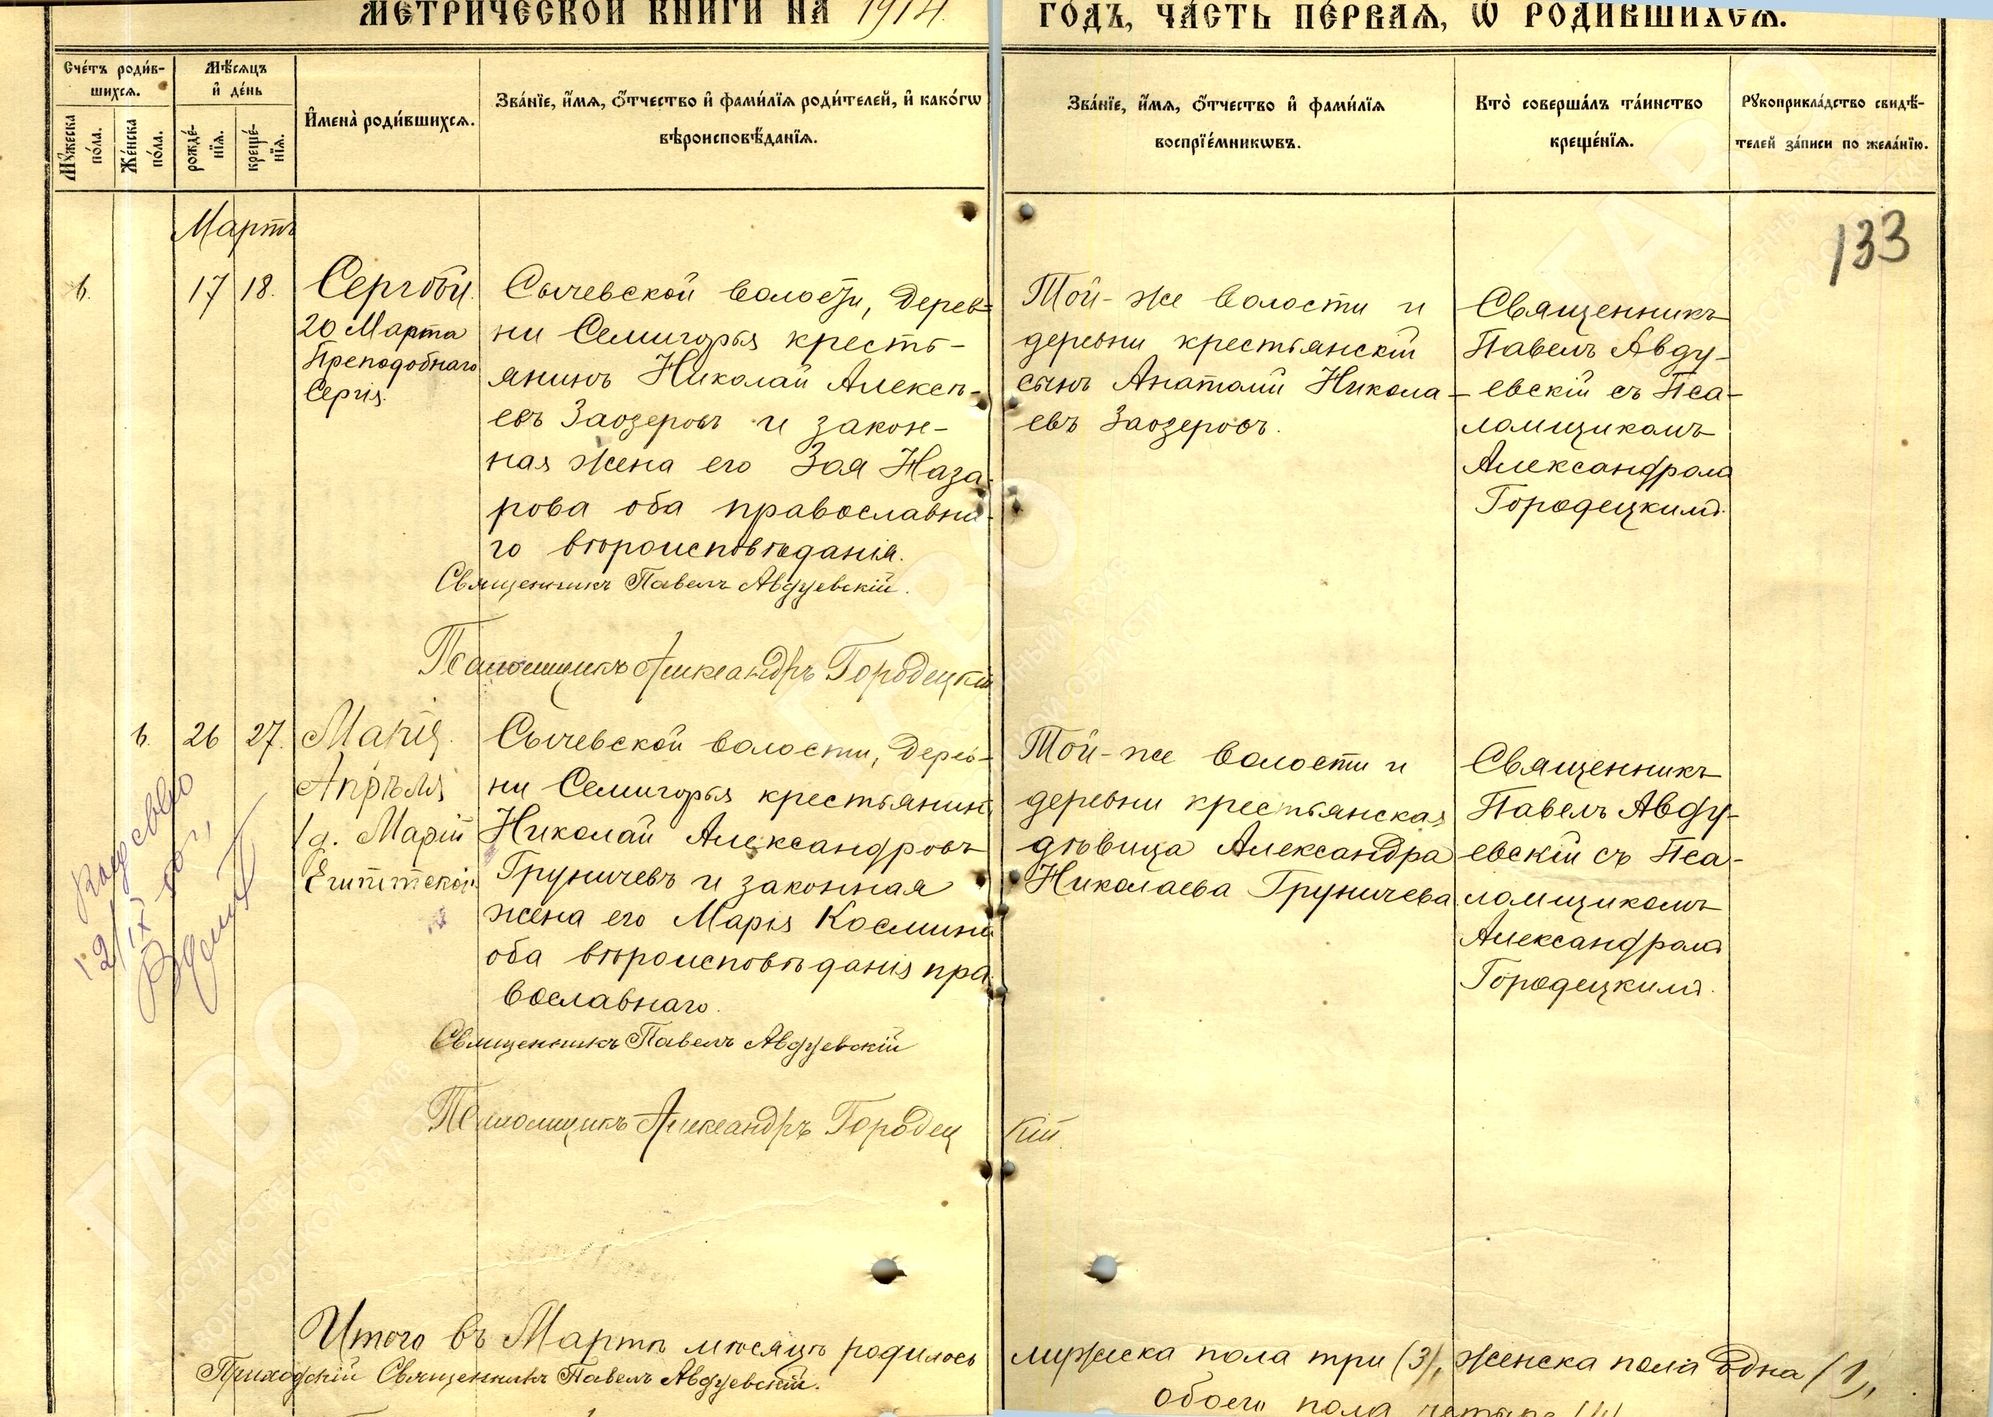 МЕТРИЧЕСКОЙ КНИГИ НА 1914. ГО́ДЪ, ЧА́СТЬ ПЕ́РВАѦ, Ѡ РОДИ́ВШИХСѦ.
Сче́тъ роди́в-
шихсѧ.
Мꙋ́жеска
по́ла.
Же́нска
по́ла.
Мѣ́сѧцъ
и҆ де́нь
рожде́-
нїѧ.
креще́-
нїѧ.
И҆мена̀ роди́вшихсѧ.
Зва́нїе, и҆́мѧ, ѻ҆́тчество и҆ фами́лїѧ роди́телей, и҆ како́гѡ
вѣроисповѣ́данїѧ.
Зва́нїе, и҆́мѧ, ѻ҆́тчество и҆ фами́лїѧ
воспрїе́мникѡвъ.
Кто̀ соверша́лъ та́инство
креще́нїѧ.
Рꙋкоприкла́дство свидѣ́-
телей за́писи по жела́нїю.
133
Мартъ
6.
17
18.
Сергѣй.
20 Марта
Преподобнаго
Сергія.
Сычевской волости, дерев-
ни Семигорья кресть-
янинъ Николай Алексѣ-
евъ Заозеровъ и закон-
ная жена его Зоя Наза-
рова оба православна-
го вѣроисповѣданія.
Священникъ Павелъ Авдуевскій.
Псаломщикъ Александръ Городецкій
Той-же волости и
деревни крестьянскій
сынъ Анатолій Никола-
евъ Заозеровъ.
Священникъ
Павелъ Авду-
евскій съ Пса-
ломщикомъ
Александромъ
Городецкимъ.
6.
26
27.
Марія.
Апрѣля
1 д. Маріи
Египетской.
Сычевской волости, дерев-
ни Семигорья крестьянинъ
Николай Александровъ
Груничевъ и законная
жена его Марія Космина
оба вѣроисповѣданія пра-
вославнаго.
Священникъ Павелъ Авдуевскій
Псаломщикъ Александръ Городецкій
Той-же волости и
деревни крестьянская
дѣвица Александра
Николаева Груничева.
Священникъ
Павелъ Авду-
евскій съ Пса-
ломщикомъ
Александромъ
Городецкимъ.
12/IX
Итого въ Мартѣ мѣсяцѣ родилось мужеска пола три (3), женска пола одна (1),
обоего пола четыре (4)
Приходскій Священникъ Павелъ Авдуевскій.
ГАВО
ГОСУДАРСТВЕННЫЙ АРХИВ
ВОЛОГОДСКОЙ ОБЛАСТИ